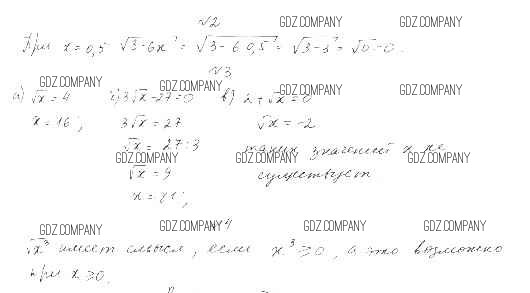 №2
GDZ.COMPANY GDZ.COMPANY
При x = 0,5 √3-6x = √3-6·0,5 = √3-3 = √0 = 0.
№3
GDZ.COMPANY GDZ.COMPANY GDZ.COMPANY GDZ.COMPANY
а) √x = 4 б) 3√x - 27 = 0 в) 2 + √x = 0
x = 16; 3√x = 27 √x = -2
√x = 27:3 таких значений x не
GDZ.COMPANY GDZ.COMPANY GDZ.COMPANY
√x = 9 существует
x = 81;
GDZ.COMPANY GDZ.COMPANY №4 GDZ.COMPANY GDZ.COMPANY
√x³ имеет смысл, если x³ ≥ 0, а это возможно
при x ≥ 0.